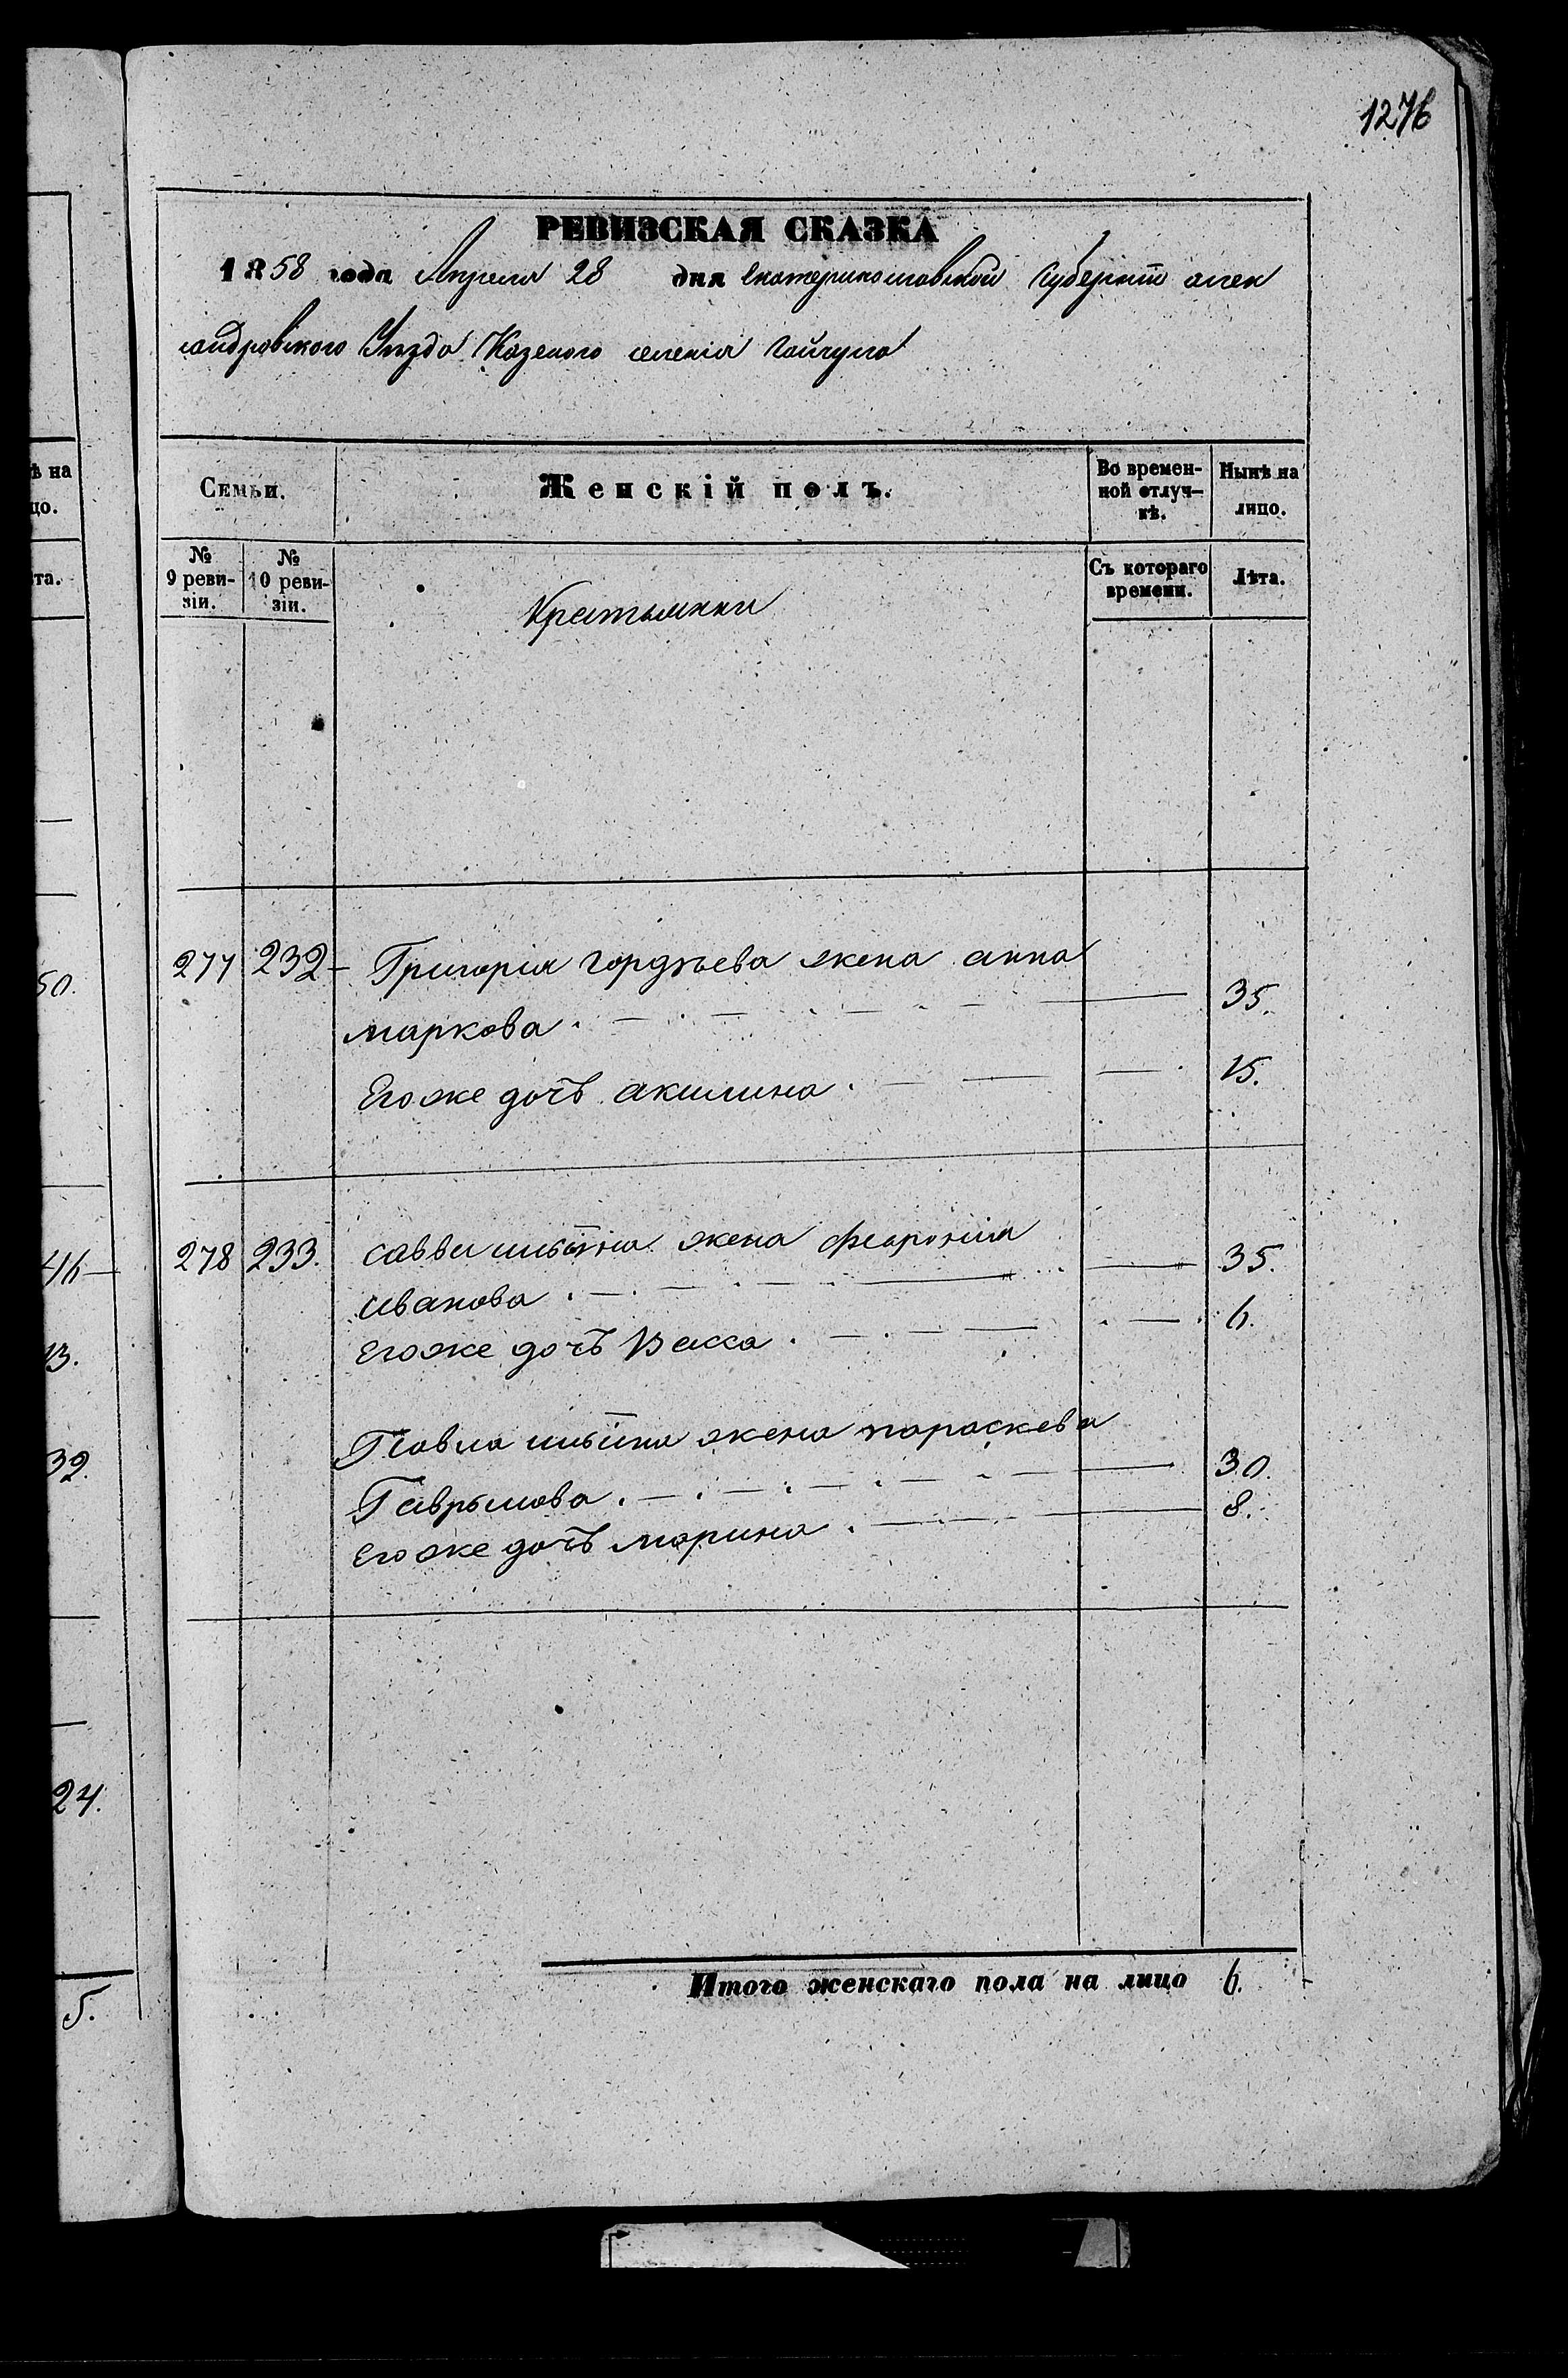 1276
РЕВИЗСКАЯ СКАЗКА
1858 года Апреля 28 дня Екатеринославской Губернiи алек
сандровского Уезда Казеного селенiя Гайчула
Семьи. Женскiй полъ. Во времен- Нынѣ на
ной отлуч- лицо.
кѣ.
№ № Съ котораго Лѣта.
9 реви- 10 реви- времени.
зiи. зiи.
Крестьянки
277 232 Григорiя гордѣева жена анна
маркова 35.
Его же дочь акилина 15.
278 233. савви жена феврониа
иванова 35.
Его же дочь Васса 6.
Павла жена параскева
Гаврылова 30.
Его же дочь марина 8.
Итого женскаго пола на лицо 6.
ѣ на
цо.
ѣта.
50.
46
13.
39.
24.
5.